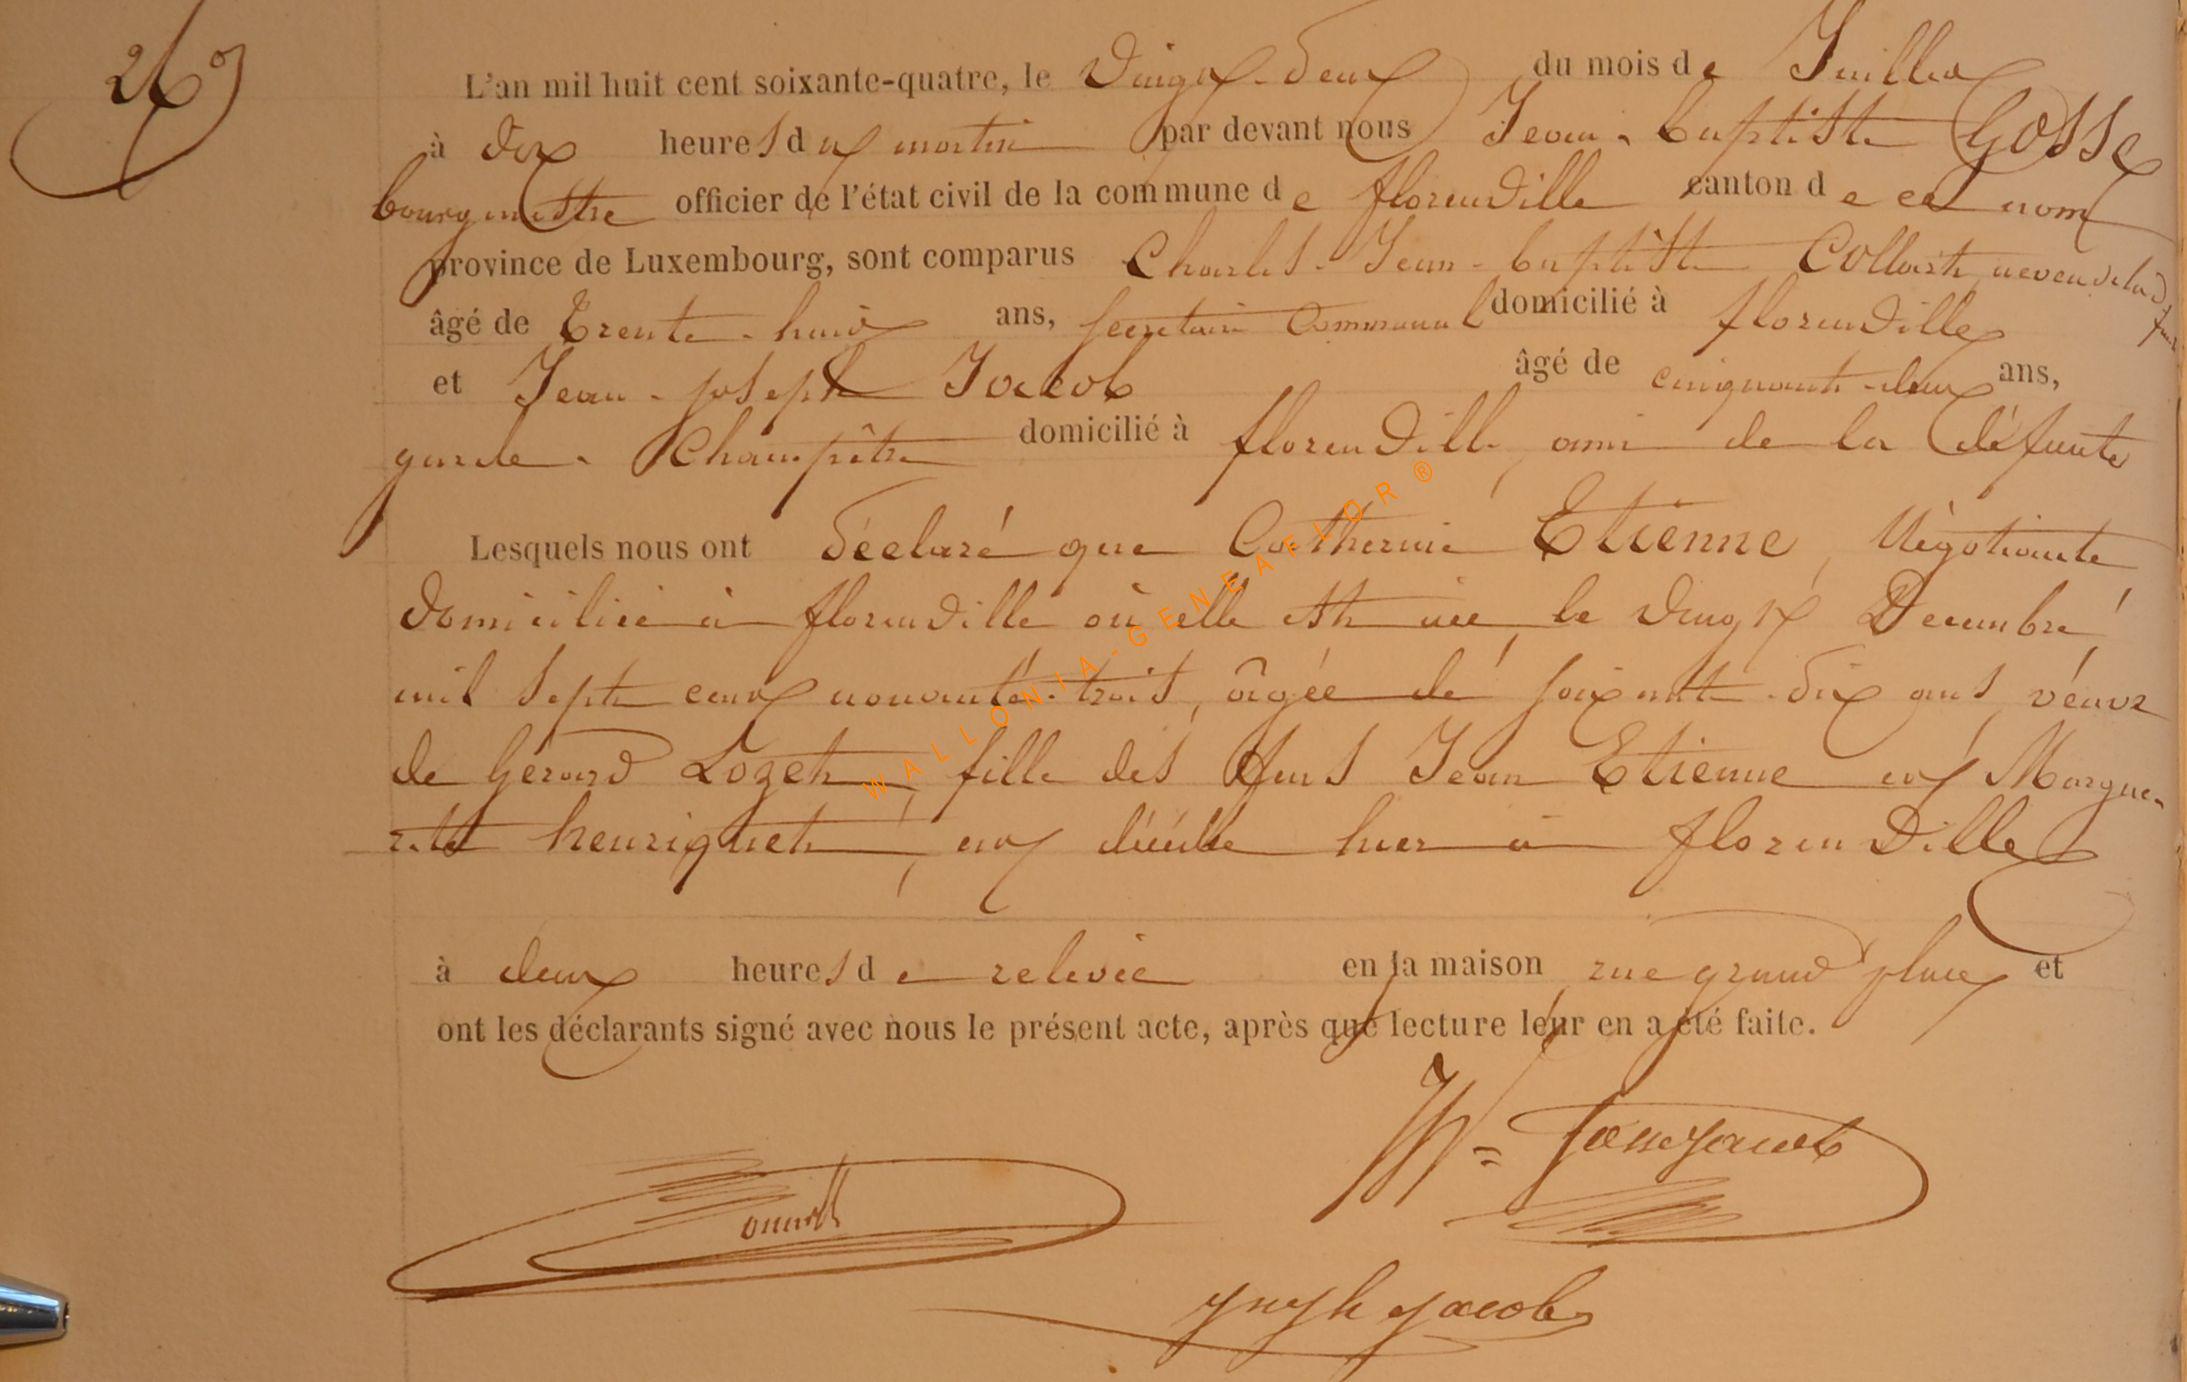 26e
L'an mil huit cent soixante-quatre, le Vingt-deux du mois de Juillet
à dix heures du matin par devant nous Jean-baptiste Gosse
bourgmestre officier de l'état civil de la commune de florenville canton de ce nom
province de Luxembourg, sont comparus Charles-Jean-baptiste Collart, neveu de la défunte
âgé de trente-huit ans, secretaire Communal domicilié à florenville
et Jean-joseph Jacob âgé de cinquante-deux ans,
garde-Champêtre domicilié à florenville, ami de la défunte
Lesquels nous ont déclaré que Catherine Etienne, Négotiante
domiciliée à florenville où elle est née, le vingt Decembre
mil sept cent nonante-trois, âgée de soixante-dix ans, veuve
de Gérard Lozet, fille des feus Jean Etienne et Margue-
rite henriquet, est décédée hier à florenville
à deux heures de relevée en la maison rue grand place et
ont les déclarants signé avec nous le présent acte, après que lecture leur en a été faite.
Jacob
WALLONIA-GENEAFLOR®